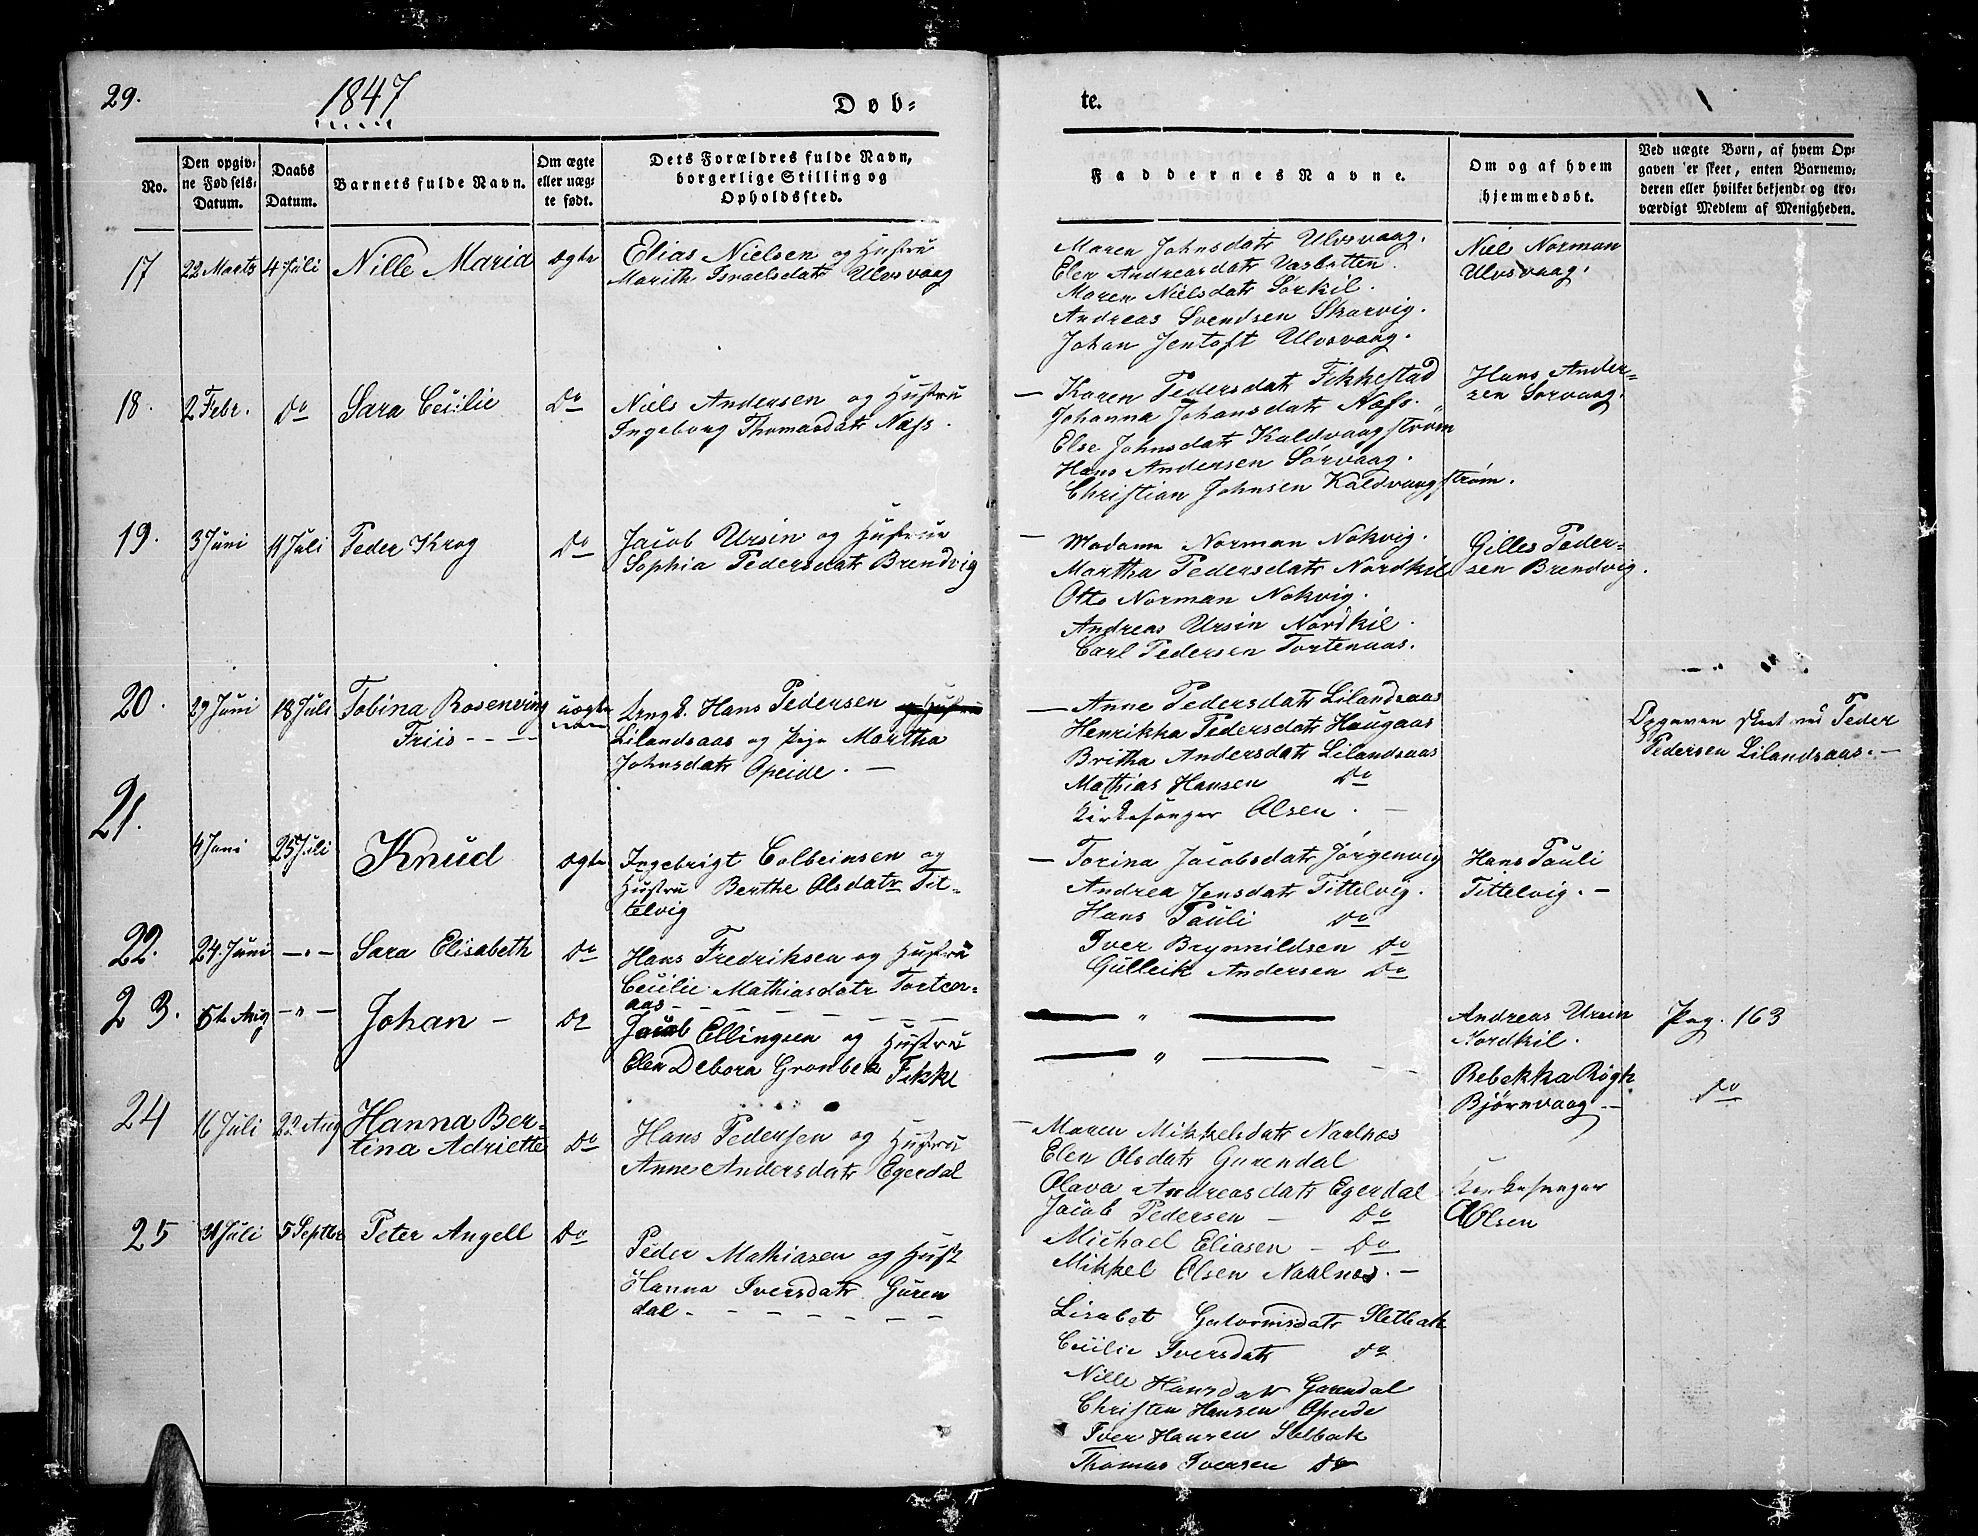 29.
1847
Dob-
te.
No.
Den opgiv-
ne Fødsels-
Datum.
Daabs
Datum.
Barnets fulde Navn.
Om ægte
eller uæg-
te født.
Dets Forældres fulde Navn,
borgerlige Stilling og
Opholdssted.
Faddernes Navne.
Om og af hvem
hjemmedøbt.
Ved uægte Børn, af hvem Op-
gaven er skeet, enten Barnemo-
deren eller hvilket bekjendt og tro-
værdigt Medlem af Menigheden.
17
22 Marts
4 Juli
Nille Maria
ægte
Elias Nielsen og Hustru
Marith Israelsdatr Ulvsvaag
Maren Johnsdatr Ulvsvaag.
Elen Andreasdatr Vasbotten.
Maren Nielsdatr Sørkil.
Andreas Svendsen Skarvig.
Johan Jentoft Ulvsvaag.
Niels Norman
Ulvsvaag.
18.
2 Febr.
Do
Sara Cecilie
Do
Niels Andersen og Hustru
Ingeborg Thomasdatr Næss.
— Karen Pedersdatr Fikkestad
Johanna Johansdatr Næss.
Else Johnsdatr Kaldvaagstrøm
Hans Andersen Sørvaag.
Christian Johnsen Kaldvaagstrøm.
Hans Ander-
sen Sørvaag.
19.
3 Juni
11 Juli
Peder Krog
Do
Jacob Ursin og Hustrue
Sophia Pedersdatr Brendvig
— Madame Norman Nokvig.
Martha Pedersdatr Nordkil
Otto Norman Nokvig.
Andreas Ursin Nordkil.
Carl Pedersen Tortenaas.
Gilles Peder-
sen Brendvig.
20.
29 Juni
18 Juli
Tobina Rosenving
Friis - - -
uægte
Ungk. Hans Pedersen og Hustru
Lilandsaas og Pige Martha
Johnsdatr Opeide. —
— Anne Pedersdatr Lilandsaas
Henrikka Pedersdatr Haugaas
Britha Andersdatr Lilandsaas
Mathias Hansen Do
Kirkesanger Olsen. —
Opgaven skeet ved Peder
Pedersen Lilandsaas. —
21.
4 Juni
25 Juli
Knud
ægte
Ingebrigt Colbeinsen og
Hustru Berthe Olsdatr Tit-
telvig
— Torina Jacobsdatr Jørgenvig
Andrea Jensdatr Tittelvig.
Hans Pauli Do
Iver Brynnildsen Do
Gulleik Andersen Do
Hans Pauli
Tittelvig. —
22.
24. Juni
— " —
Sara Elisabeth
Do
Hans Fredriksen og Hustru
Cecilie Mathiasdatr Torten-
aas - - - -
— " —
Andreas Ursin
Nordkil.
Pag. 163
23.
— " —
Johan —
Do
Jacob Ellingsen og Hustru
Elen Debora Gronbek Fikke
— " —
Rebekka
Bjørnvaag —
Do
24
16 Juli
22 Aug
Hanna Ber-
tina Adriette
Do
Hans Pedersen og Hustru
Anne Andersdatr Egerdal
— Maren Mikkelsdatr Naalnæs
Elen Olsdatr Garendal
Olava Andreasdatr Egerdal
Jacob Pedersen — Do
Michael Eliasen — Do
Mikkel Olsen Naalnæs. —
Kirkesanger
Olsen
25
31 Juli
5 Septbr
Peter Angell
Do
Peder Mathiasen og Hust
Hanna Iversdatr Garen
dal - - - -
Lisabet Sletbak
Cecilie Iversdatr Do
Nille Hansdatr Garendal
Christen Hansen Opeide
Iver Hansen Sletbak
Thomas Iversen Do